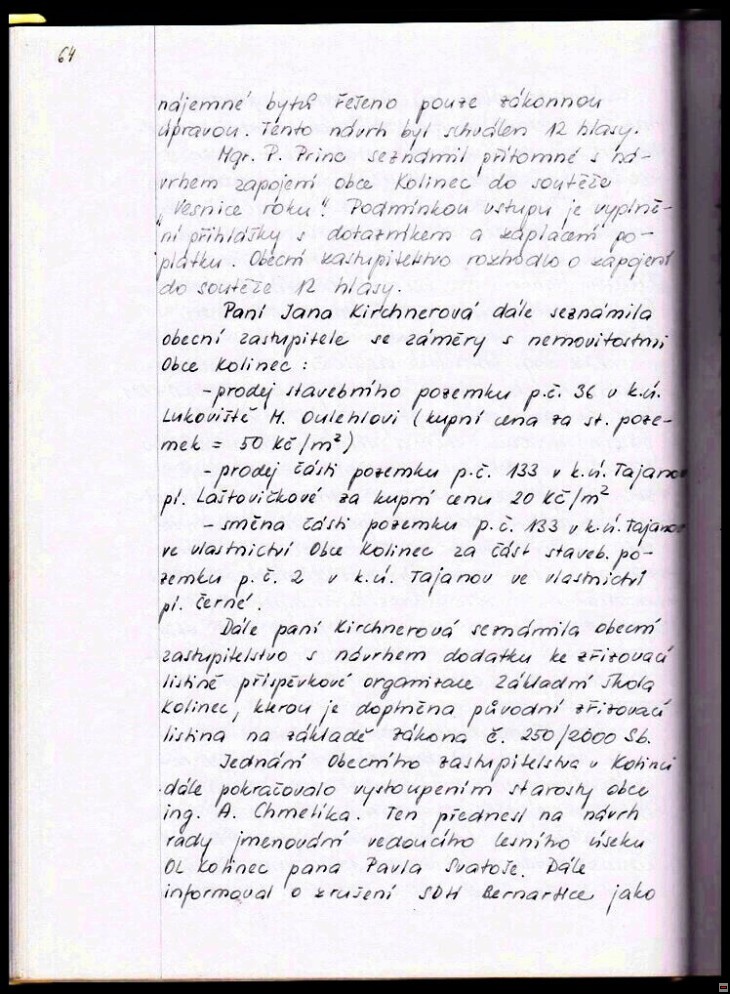 64
nájemné bytů řešeno pouze zákonnou
úpravou. Tento návrh byl schválen 12 hlasy.
Mgr. P. Princ seznámil přítomné s ná-
vrhem zapojení obce Kolinec do soutěže
"Vesnice roku". Podmínkou vstupu je vyplně-
ní přihlášky s dotazníkem a zaplacení po-
platku. Obecní zastupitelstvo rozhodlo o zapojení
do soutěže 12 hlasy.
Paní Jana Kirchnerová dále seznámila
obecní zastupitele se záměry s nemovitostmi
Obce Kolinec :
- prodej stavebního pozemku p.č. 36 v k.ú.
Lukoviště M. Oulehlovi (kupní cena za st. poze-
mek = 50 Kč/m²)
- prodej části pozemku p.č. 133 v k.ú. Tajanov
pí. Laštovičkové za kupní cenu 20 Kč/m²
- směna části pozemku p.č. 133 v k.ú. Tajanov
ve vlastnictví Obce Kolinec za část staveb. po-
zemku p.č. 2 v k.ú. Tajanov ve vlastnictví
pí. Černé.
Dále paní Kirchnerová seznámila obecní
zastupitelstvo s návrhem dodatku ke zřizovací
listině příspěvkové organizace Základní škola
Kolinec, kterou je doplněna původní zřizovací
listina na základě zákona č. 250/2000 Sb.
Jednání Obecního zastupitelstva v Kolinci
dále pokračovalo vystoupením starosty obce
ing. A. Chmelíka. Ten přednesl na návrh
rady jmenování vedoucího lesního úseku
OL Kolinec pana Pavla Svatoše. Dále
informoval o zrušení SDH Bernartice jako